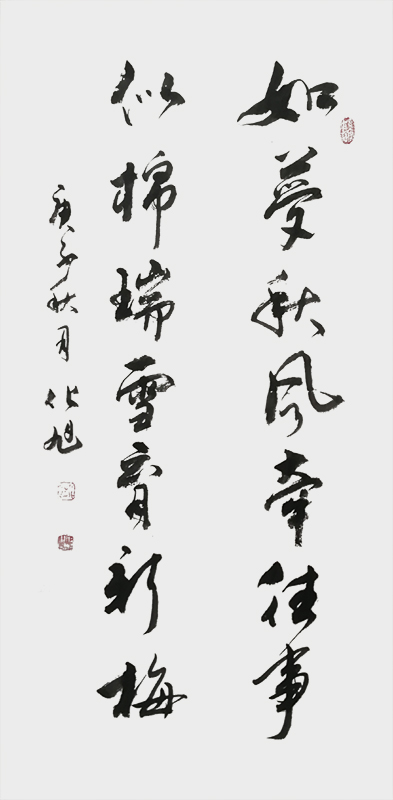 如夢秋风牵往事
似棉瑞雪育新梅
庚子秋月 化旭